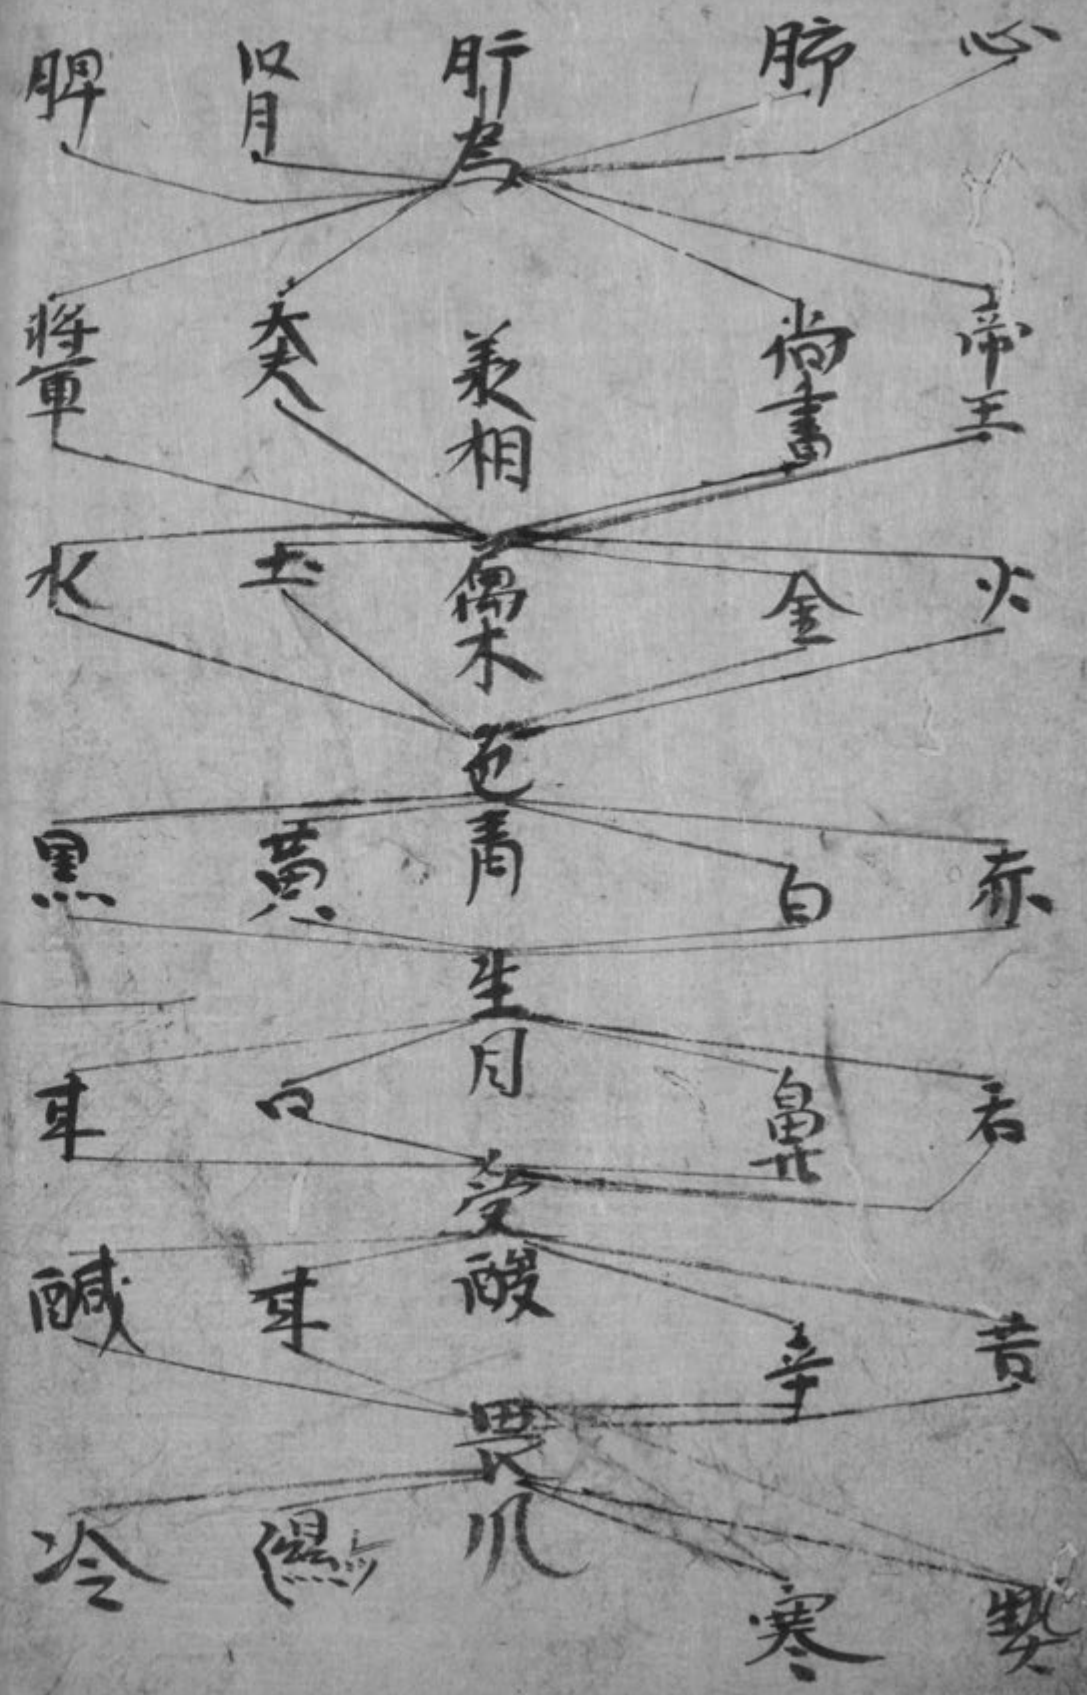 心 肺 肝 腎 脾
為
帝王 尚書 丞相 大夫 將軍
屬
火 金 木 土 水
色
赤 白 青 黃 黑
生
舌 鼻 目 口 耳
受
苦 辛 酸 甘 鹹
畏
寒 冷